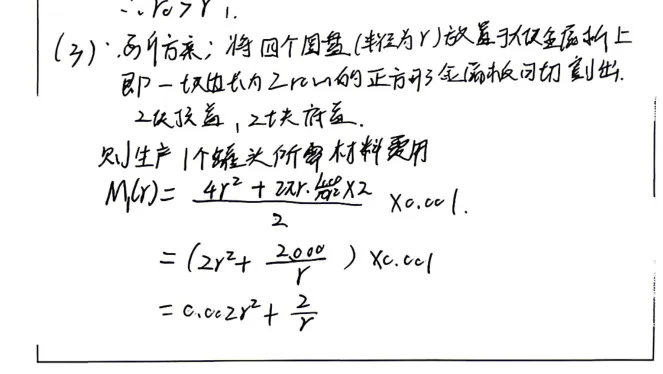 ∴ r₀ > r₁.
(3): 另外方案: 将四个圆盘(半径为r)放置于大仅金属板上
即一块边长为2rcm的正方形金属板内切割出.
2块顶盖, 2块底盖.
则生产1个罐头所需材料费用
M₁(r) = (4r² + 2πr·\frac{1000}{πr²}×2)/2 ×0.001.
= (2r² + 2000/r) ×0.001
= 0.002r² + 2/r